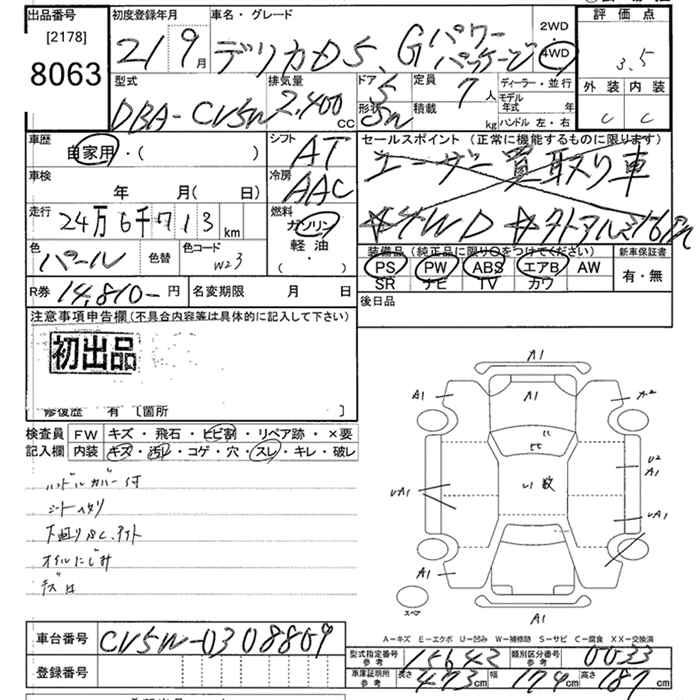 出品番号 初度登録年月 車名・グレード 2WD 4WD 評価点
[2178] 8063 21 9月 デリカD5 Gパワーパッケージ 3.5
型式 排気量 ドア 定員 ディーラー・並行 外装 内装
DBA-CV5W 2,400 CC 5 7人 モデル年式 年 C C
形状 5W 積載 kg ハンドル 左・右
車歴 自家用・( ) シフト AT セールスポイント (正常に機能するものに限ります)
車検 年 月( 日) 冷房 AAC ユーザー買取り車
走行 24万6千713km 燃料 ガソリン 軽油 ( ・ ) ☆4WD ☆外アルミ16in
色 パール 色替 色コード W23 装備品 (純正品に限り○をつけてください) 新車保証書
PS PW ABS エアB AW 有・無
SR ナビ TV カワ
R券 14,810-円 名変期限 月 日 後日品
注意事項申告欄 (不具合内容等は具体的に記入して下さい)
初出品
修復歴 有 [箇所 ]
検査員 FW キズ・飛石・ヒビ割・リペア跡・×要
記入欄 内装 キズ・汚レ・コゲ・穴・スレ・キレ・破レ
ハンドルカバー付
シートヘタリ
下廻りサビ、
オイルにじみ
A1
A1 A1 A2
U2
A1
UA1 UA1
A1
スペア A1
A-キズ E-エクボ U-凹み W-補修跡 S-サビ C-腐食 XX-交換済
車台番号 CV5W-0308809 型式指定番号 参考 15643 類別区分番号 参考 0033
登録番号 車庫証明所 参考 長さ 473cm 幅 179cm 高さ 187cm